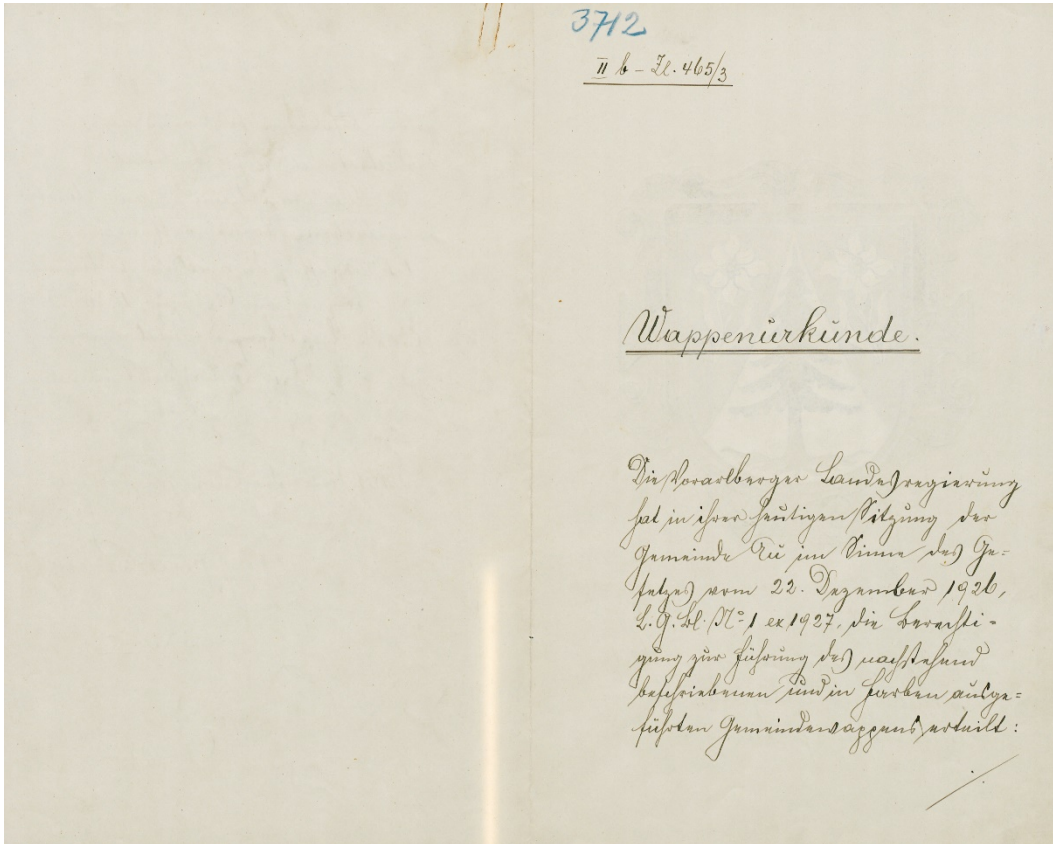 3712
II b – Zl. 465/3
Wappenurkunde.
Die Vorarlberger Landesregierung
hat in ihrer heutigen Sitzung der
Gemeinde Au im Sinne des Ge=
setzes vom 22. Dezember 1926,
L. G. Bl. No 1 ex 1927, die Berechti-
gung zur Führung des nachstehend
beschriebenen und in Farben ausge=
führten Gemeindewappens erteilt: